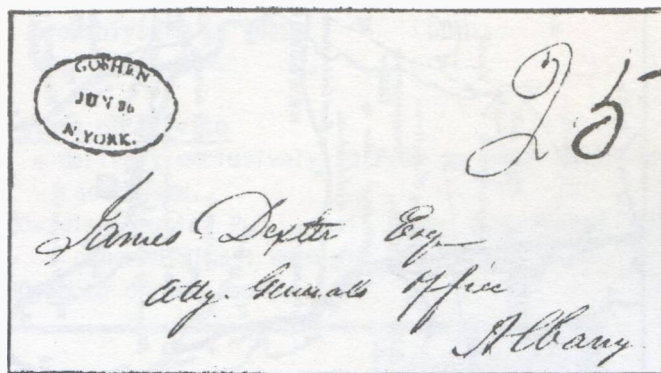 GOSHEN
JUN 26
N.YORK.
25
James Dexter Esq
Atty. Generals Office
Albany